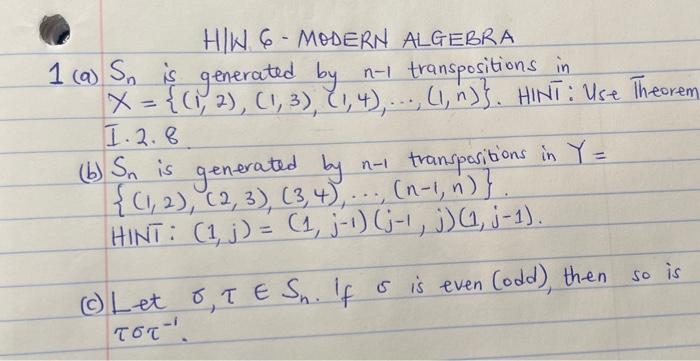 H/W 6 - MODERN ALGEBRA
1 (a) Sn is generated by n-1 transpositions in
X = {(1, 2), (1, 3), (1, 4), ..., (1, n)}. HINT: Use Theorem
I.2.8
(b) Sn is generated by n-1 transpositions in Y =
{(1, 2), (2, 3), (3, 4), ..., (n-1, n)}.
HINT: (1, j) = (1, j-1)(j-1, j)(1, j-1).
(c) Let σ, τ ∈ Sn. If σ is even (odd), then so is
τστ⁻¹.